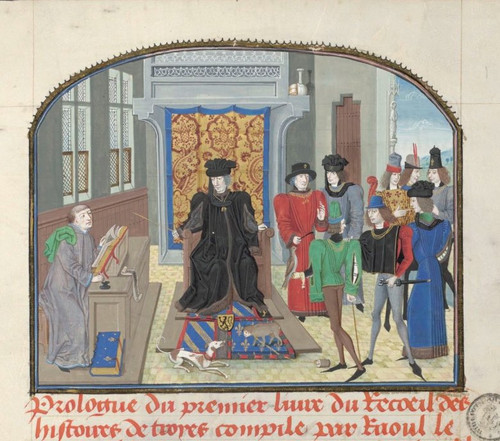 Prologue du premier liure du Recoeil des
histoires de troyes compile par Raoul le